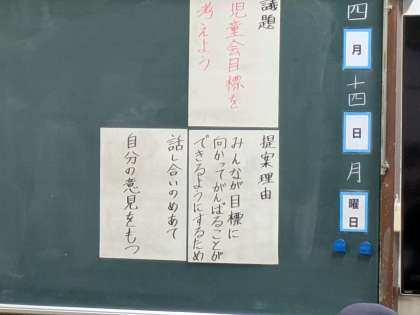 四月十四日月曜日
議題
児童会目標を
考えよう
提案理由
みんなが目標に
向かってがんばることが
できるようにするため
話し合いのめあて
自分の意見をもつ